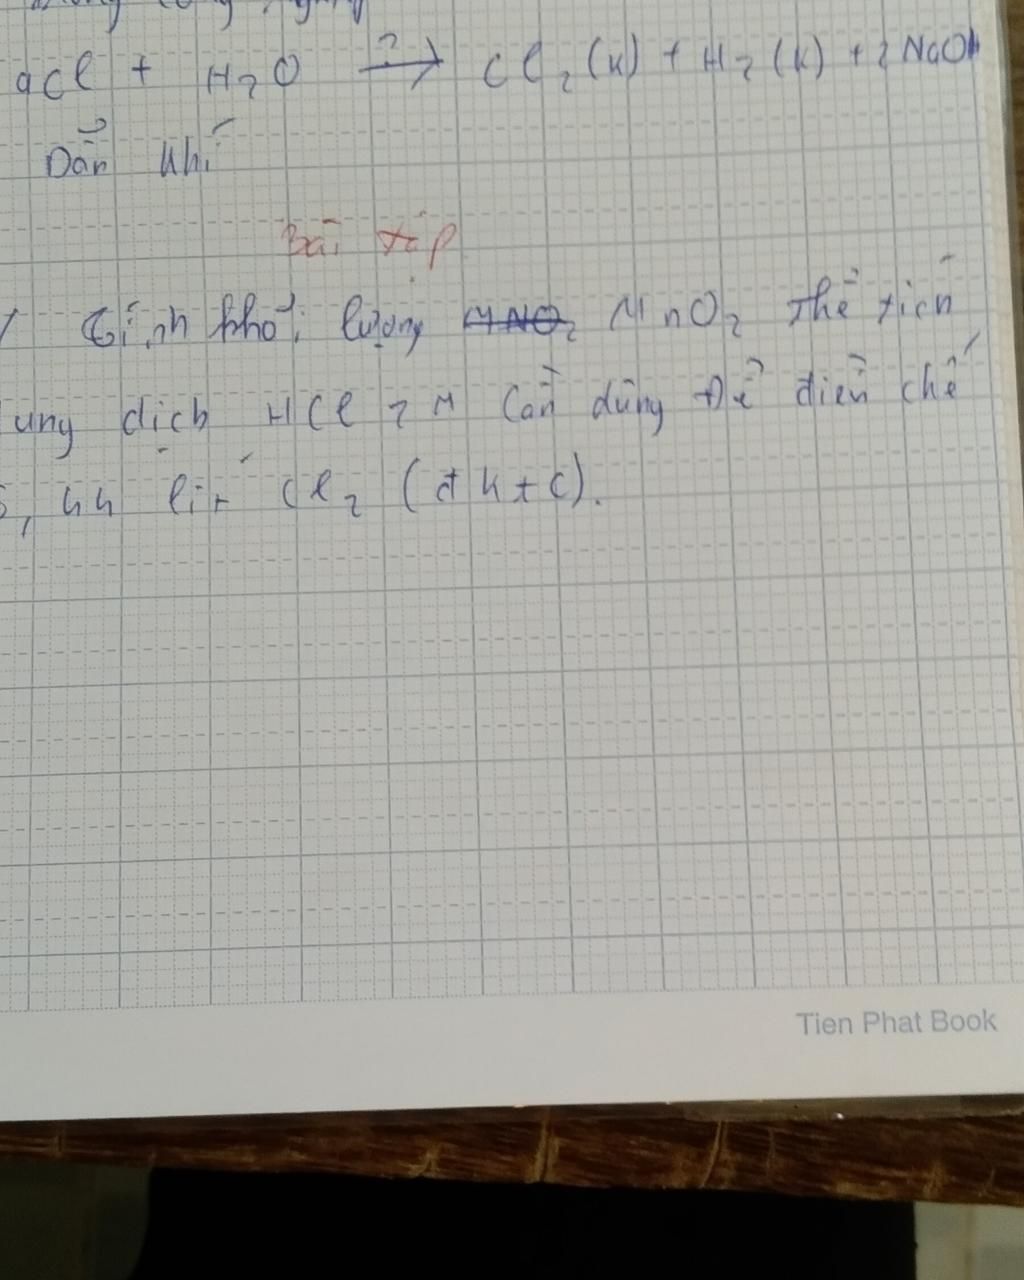 aCl + H2O ?→ Cl2 (k) + H2 (k) + 2 NaOH
Dẫn khí
Bài tập
1/ Tính khối lượng MnO2 MnO2 thể tích
ung dịch HCl 2M cần dùng để điều chế
,44 lít Cl2 (đktc).
Tien Phat Book